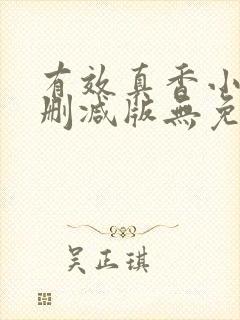 有效真香小
删减版無免
吴正琪